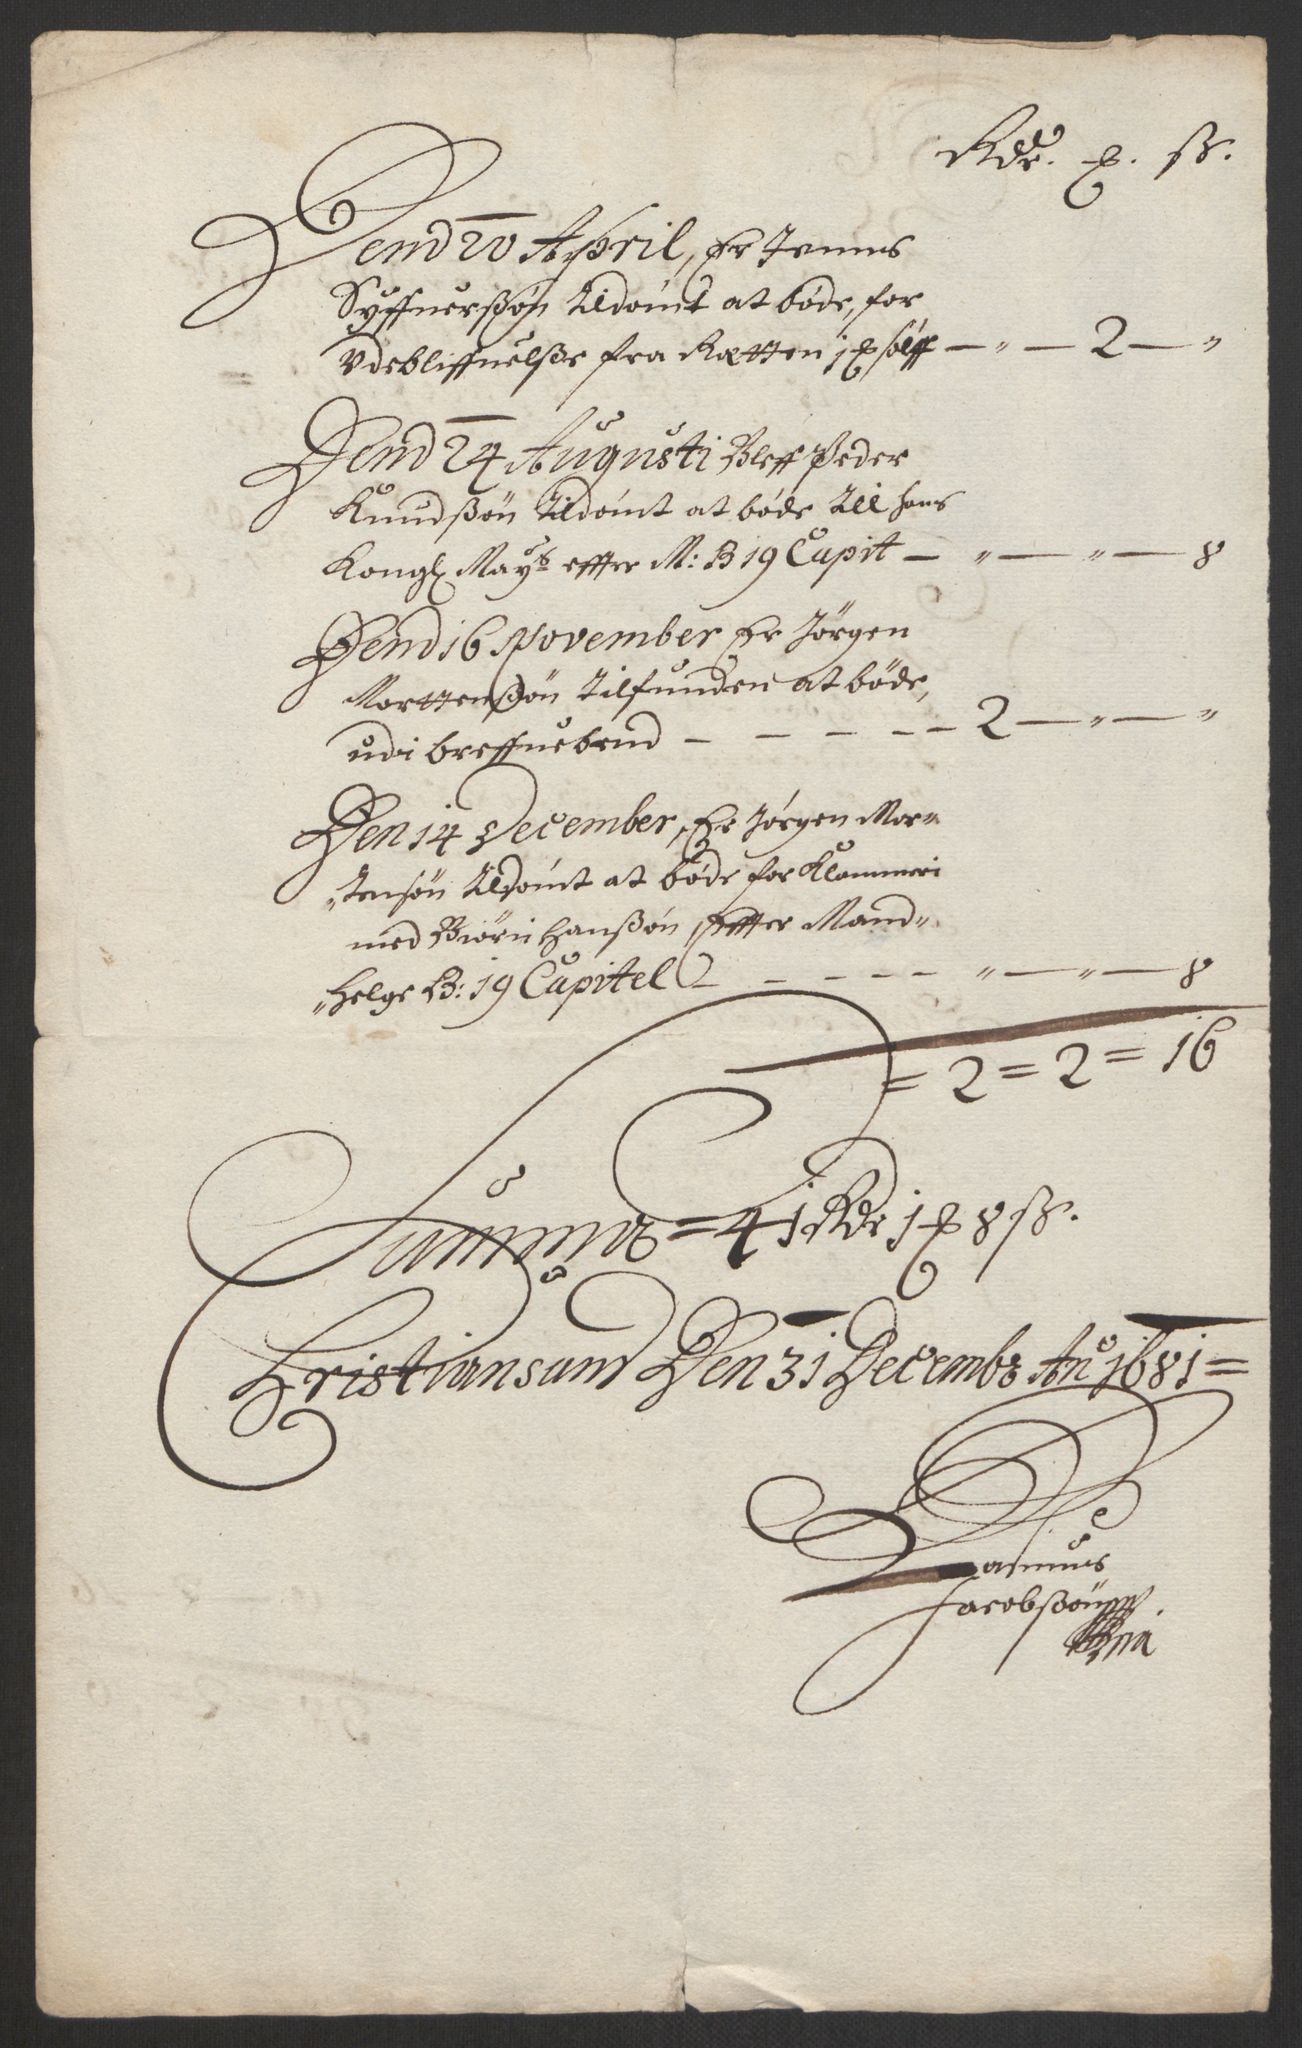 Rdr. ℔. ss.
Dend 20 April, Er Jennis
Syffuersøn tildømt at bøde, for
Vdebliffuelse fra Rætten 1 ℔ sølff — " — 2 — "
Dend 24 Augusti Bleff Peder
Knudßøn tildømt at bøde till hans
Kongl Mayts effter M: B 19 Capit — " — " — 8
Dend 16 November Er Jørgen
Morttenßøn tilfunden at bøde,
udi breffuebrud — — — — — 2 — " — "
Den 14 December, Er Jørgen Mor-
-tensøn tildømt at bøde for Klammeri
med Biørn Hanßøn, Effter Mand-
-helge B: 19 Capitel — — — — " — " — 8
= 2 = 2 = 16
Summa = 41 Rdr 1 ℔ 8 ss.
Christiansand Den 31 Decembr Ao 1681 =
Rasmus
Jacobßøn